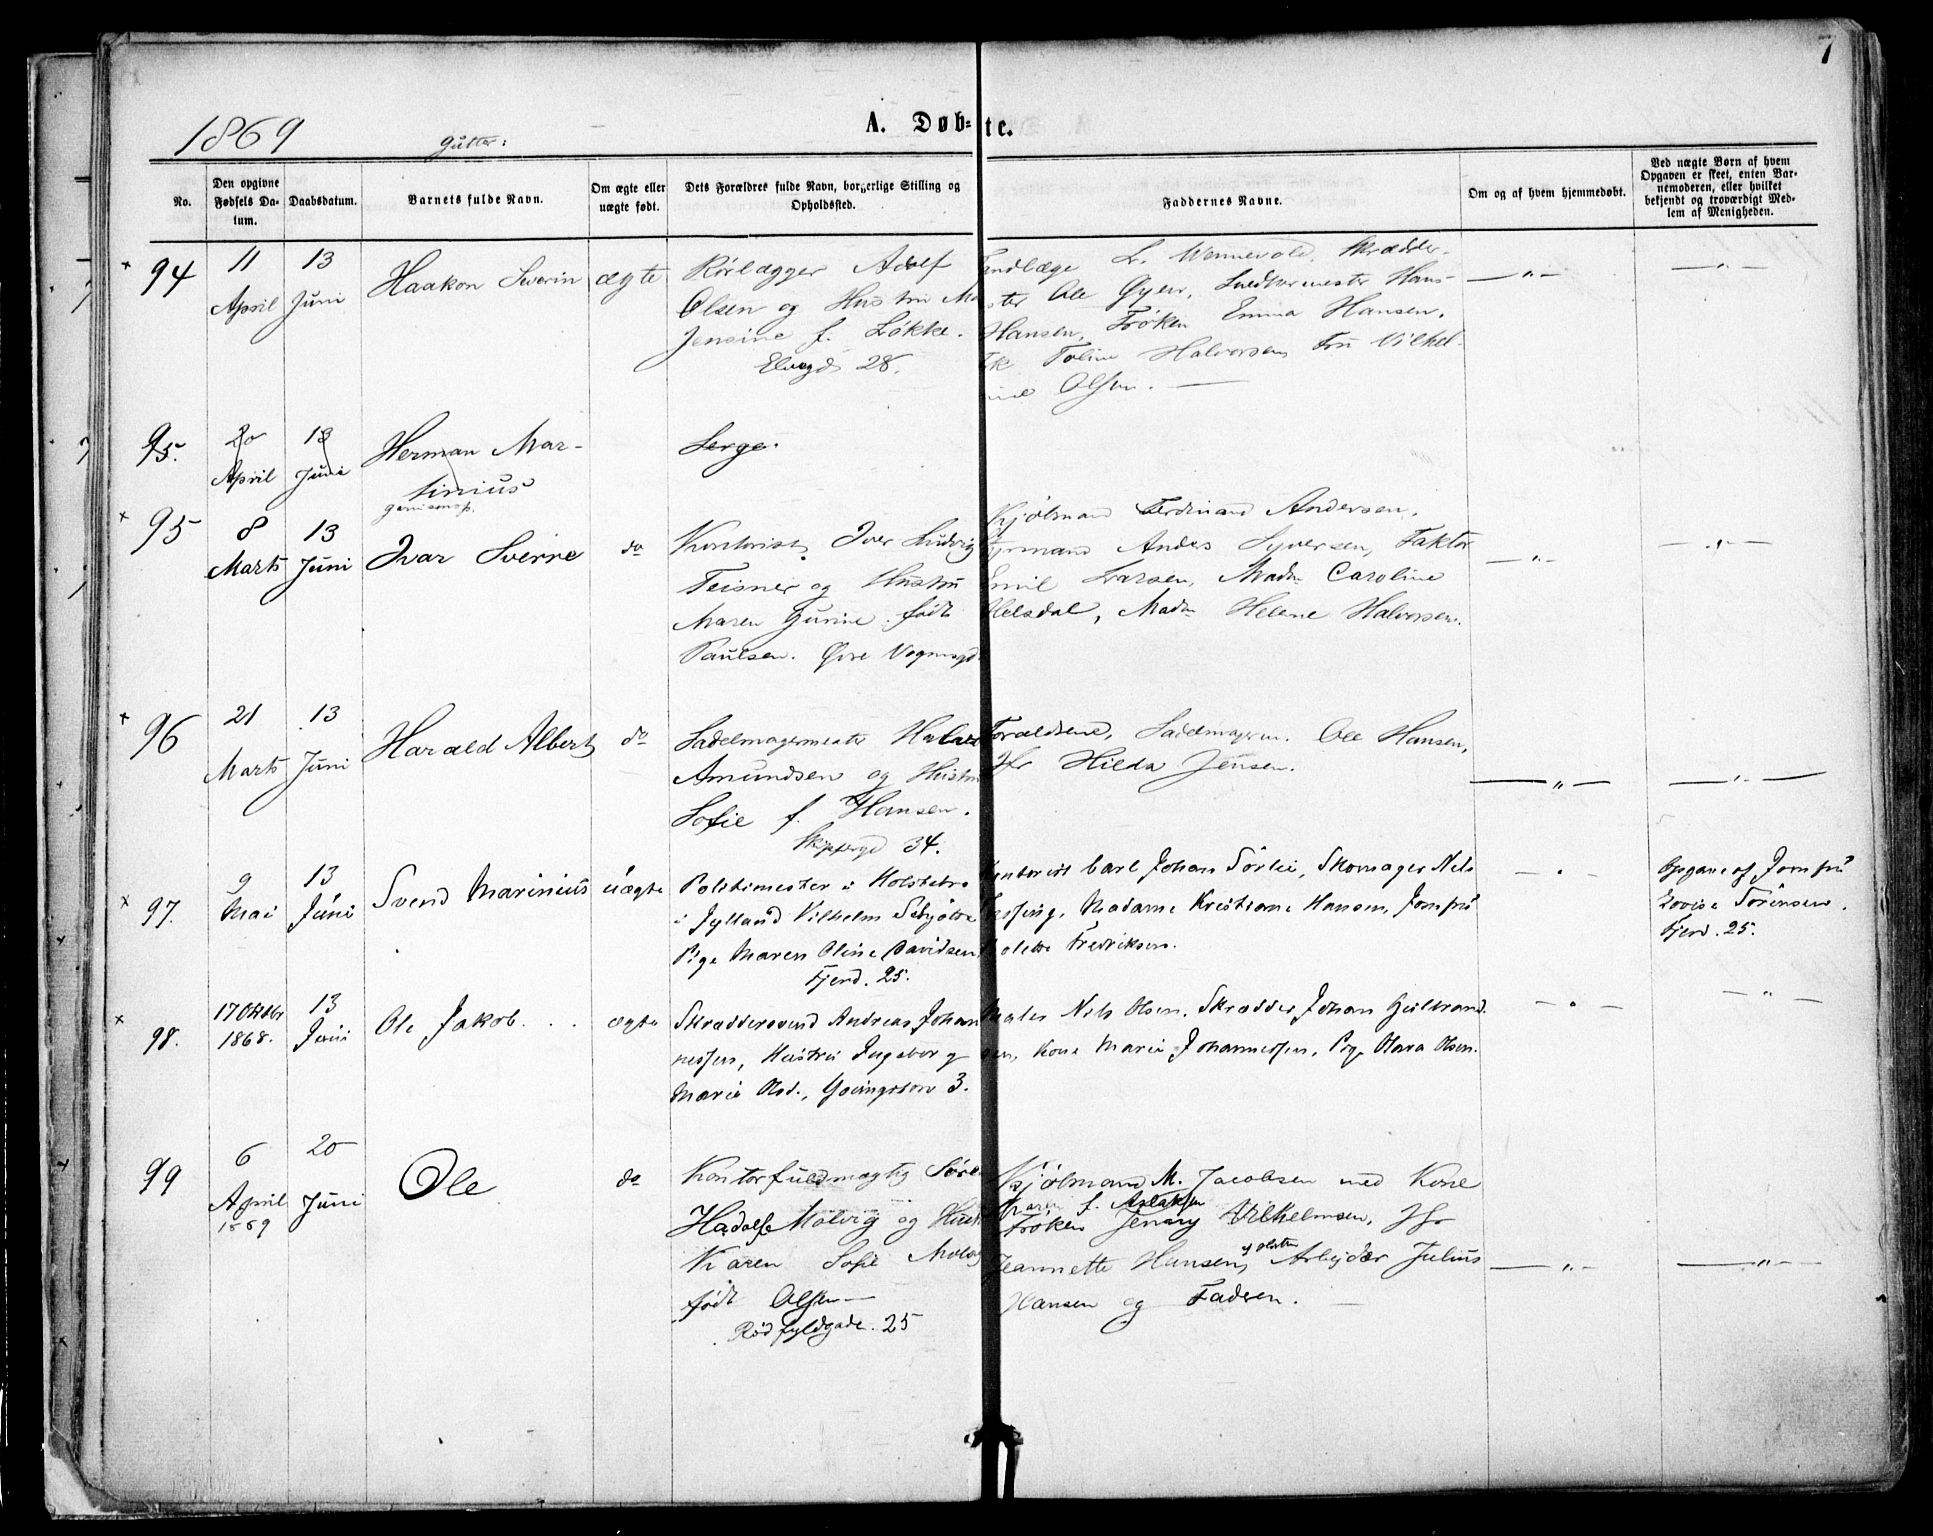 7
1869 Gutter: A. Døb-te.
No.
Den opgivne Fødsels Da-tum.
Daabsdatum.
Barnets fulde Navn.
Om ægte eller uægte født.
Dets Forældres fulde Navn, borgerlige Stilling og Opholdssted.
Faddernes Navne.
Om og af hvem hjemmedøbt.
Ved uægte Børn af hvem Opgaven er skeet, enten Bar-nemoderen, eller hvilket bekjendt og troværdigt Med-lem af Menigheden.
94
11 April
13 Juni
Haakon Sverin
ægte
Rørlægger Adolf
Olsen og Hustru
Jensine f. Løkke.
28.
Ole Gyer, Hans
Hansen, Frøken Emma Hansen,
Halvorsen, Fru Vilhel-
mine Olsen.
95.
20 April
13 Juni
Herman Mar-
tinius
95
8 Marts
13 Juni
Ivar Sverre
do
Kontorist Iver Ludvig
Teisner og Hustru
Maren Gurine født
Paulsen. Øvre Vognmgd.
Kjølmand Ferdinand Andersen,
Anders Syversen, Faktor
Emil Larsen, Madm Caroline
Madm Helene Halvorsen.
96
21 Marts
13 Juni
Harald Albert
do
Sadelmagermester
Amundsen og Hustru
Sofie f. Hansen.
Skippergd 34.
Forældrene, Sadelmagerm. Ole Hansen,
Jfr Hilda Jensen.
97.
9 Mai
13 Juni
Svend Marinius
uægte
Politimester i Holstebro
i Jylland Vilhelm
Pige Maren Oline Davidsen
Fjerd. 25.
Kontorist Carl Johan Sørlie, Skomager Nels
Madame Kristiane Hansen, Jomfru
Fredriksen.
Opgave af Jomfru
Lovise Sørensen.
Fjerd. 25.
98.
17 Oktbr 1868.
13 Juni
Ole Jakob.
ægte
Skræddersvend Andreas Johan
nessen, Hustru Ingeborg
Marie Olsd., 3.
Maler Nils Olsen, Skrædder Johan Gulbrand
sen, Kone Marie Johannessen, Pige Olava Olsen.
99
6 April 1869
20 Juni
Ole
do
Kontorfuldmægtig
Molvig og
Karen Sofie
født Olsen
Rødfyldgade. 25
Kjølmand M. Jacobsen med Kone
Karen f. Aslaksen
Frøken Jenny Vilhelmsen, Jfr
Jeannette Hansen, Arbejder Julius
Hansen og Faderen.